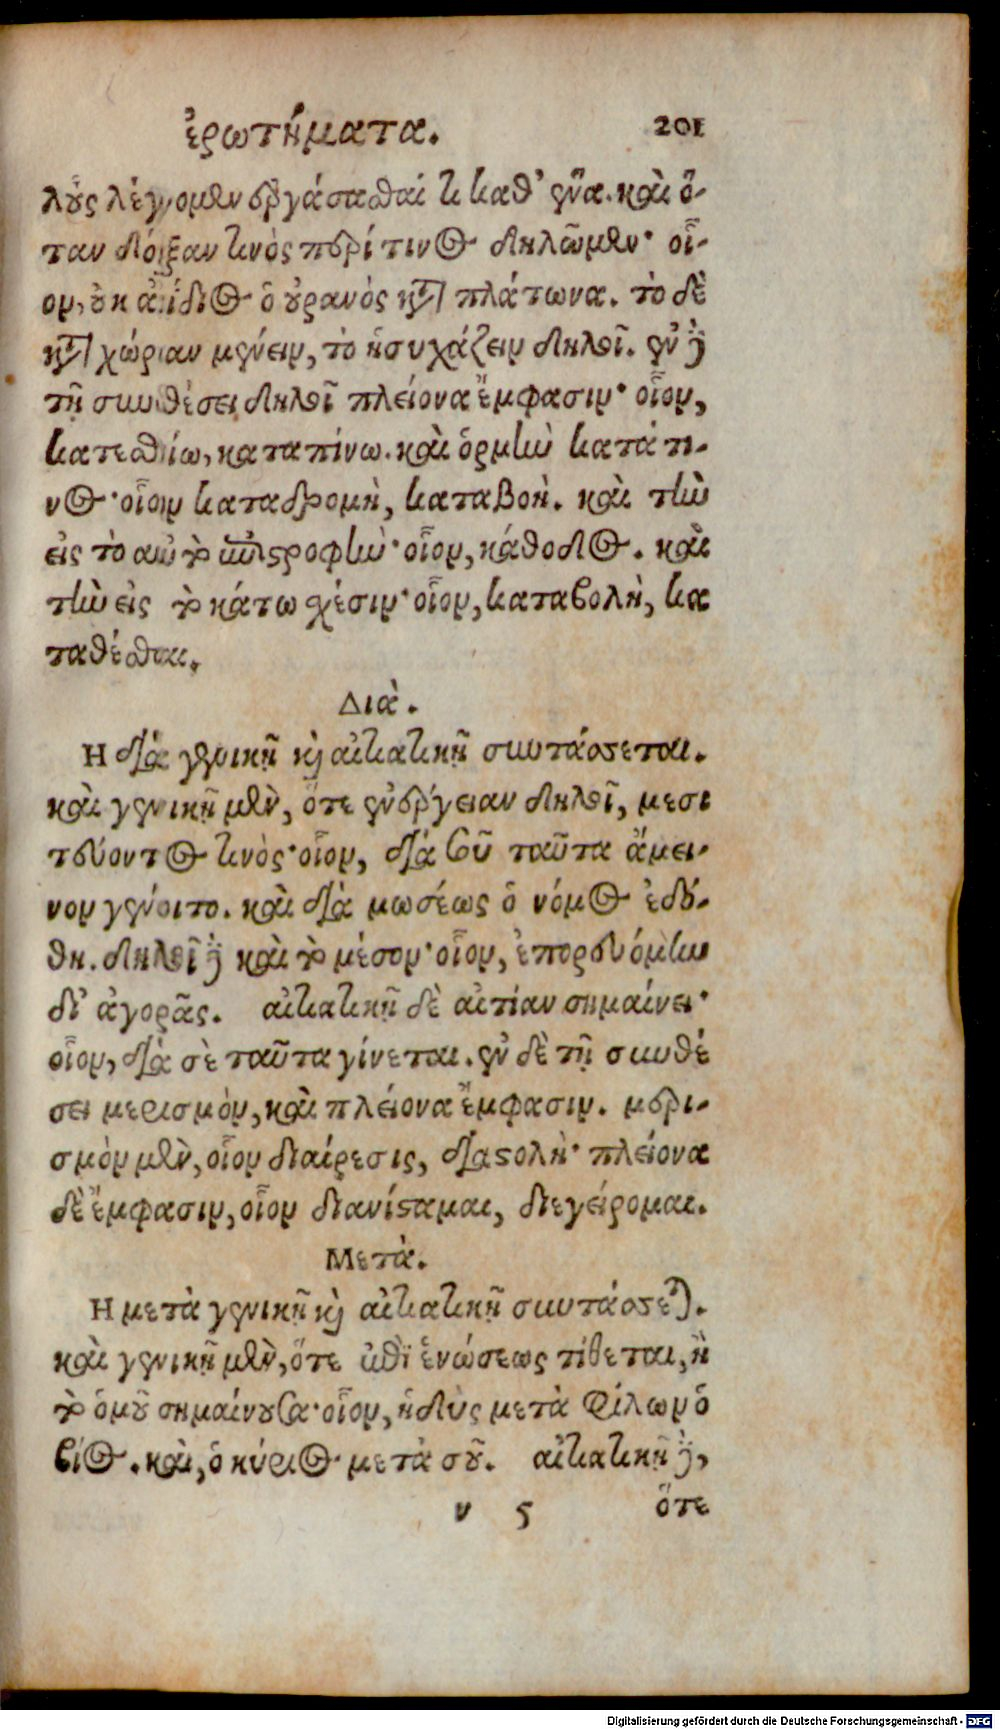 ἐρωτήματα. 201
λοῦς λέγομεν ἐργάσασθαί τι καθ' ἕνα. καὶ ὅ-
ταν δόξαν τινὸς περί τινος δηλῶμεν· οἷ-
ον, οὐκ ἀΐδιος ὁ οὐρανὸς κατὰ πλάτωνα. τὸ δὲ
κατὰ χώραν μένειν, τὸ ἡσυχάζειν δηλοῖ. ἐν δὲ
τῇ συνθέσει δηλοῖ πλείονα ἔμφασιν· οἷον,
κατεσθίω, καταπίνω. καὶ ὁρμὴν κατά τι-
νος· οἷον καταδρομὴ, καταβοή. καὶ τὴν
εἰς τὸ αὐτὸ ὑποστροφὴν· οἷον, κάθοδος. καὶ
τὴν εἰς τὸ κάτω σχέσιν· οἷον, καταβολὴ, κα
ταθέσθαι.
Διὰ.
Η διὰ γενικῇ καὶ αἰτιατικῇ συντάσσεται.
καὶ γενικῇ μὲν, ὅτε ἐνέργειαν δηλοῖ, μεσι
τεύοντος τινὸς· οἷον, διὰ σοῦ ταῦτα ἄμει-
νον γένοιτο. καὶ διὰ μωσέως ὁ νόμος ἐδό-
θη. δηλοῖ δὲ καὶ τὸ μέσον· οἷον, ἐπορευόμην
δι' ἀγορᾶς. αἰτιατικῇ δὲ αἰτίαν σημαίνει·
οἷον, διὰ σὲ ταῦτα γίνεται. ἐν δὲ τῇ συνθέ
σει μερισμὸν, καὶ πλείονα ἔμφασιν. μερι-
σμὸν μὲν, οἷον διαίρεσις, διαστολὴ· πλείονα
δὲ ἔμφασιν, οἷον διανίσταμαι, διεγείρομαι.
Μετὰ.
Η μετὰ γενικῇ καὶ αἰτιατικῇ συντάσσεται.
καὶ γενικῇ μὲν, ὅτε ἐπὶ ἑνώσεως τίθεται, ἢ
τὸ ὁμοῦ σημαίνουσα· οἷον, ἡδὺς μετὰ φίλων ὁ
βίος. καὶ, ὁ κύριος μετὰ σοῦ. αἰτιατικῇ δὲ,
ν 5 ὅτε
Digitalisierung gefördert durch die Deutsche Forschungsgemeinschaft - DFG